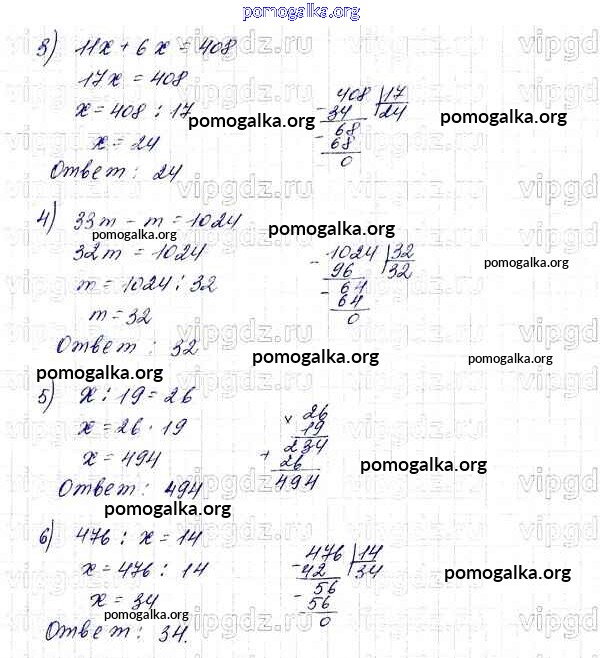 pomogalka.org
3) 11x + 6x = 408
17x = 408
x = 408 : 17
x = 24
Ответ : 24
408 | 17
- 34 24
- 68
68
0
pomogalka.org
pomogalka.org
4) 33m - m = 1024
32m = 1024
m = 1024 : 32
m = 32
Ответ : 32
- 1024 | 32
96 32
- 64
64
0
pomogalka.org
pomogalka.org
pomogalka.org
pomogalka.org
pomogalka.org
pomogalka.org
5) x : 19 = 26
x = 26 · 19
x = 494
Ответ : 494
× 26
19
+ 234
26
494
pomogalka.org
pomogalka.org
6) 476 : x = 14
x = 476 : 14
x = 34
Ответ : 34.
- 476 | 14
42 34
- 56
56
0
pomogalka.org
pomogalka.org
vipgdz.ru